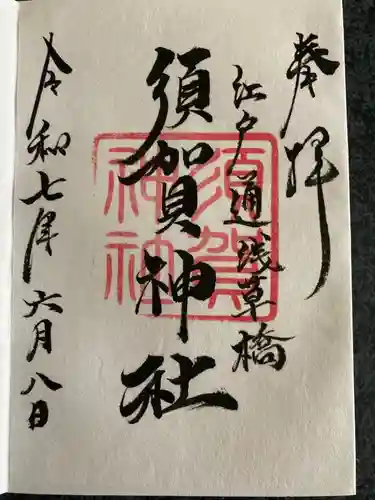 奉拝
江戸通浅草橋
須賀神社
令和七年六月八日
須賀
神社